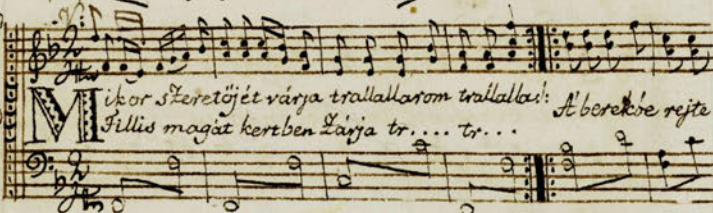 Mikor szeretőjét várja trallallarom trallalla: A' berekbe rejte
Fillis magát kertben Zárja tr.... tr...